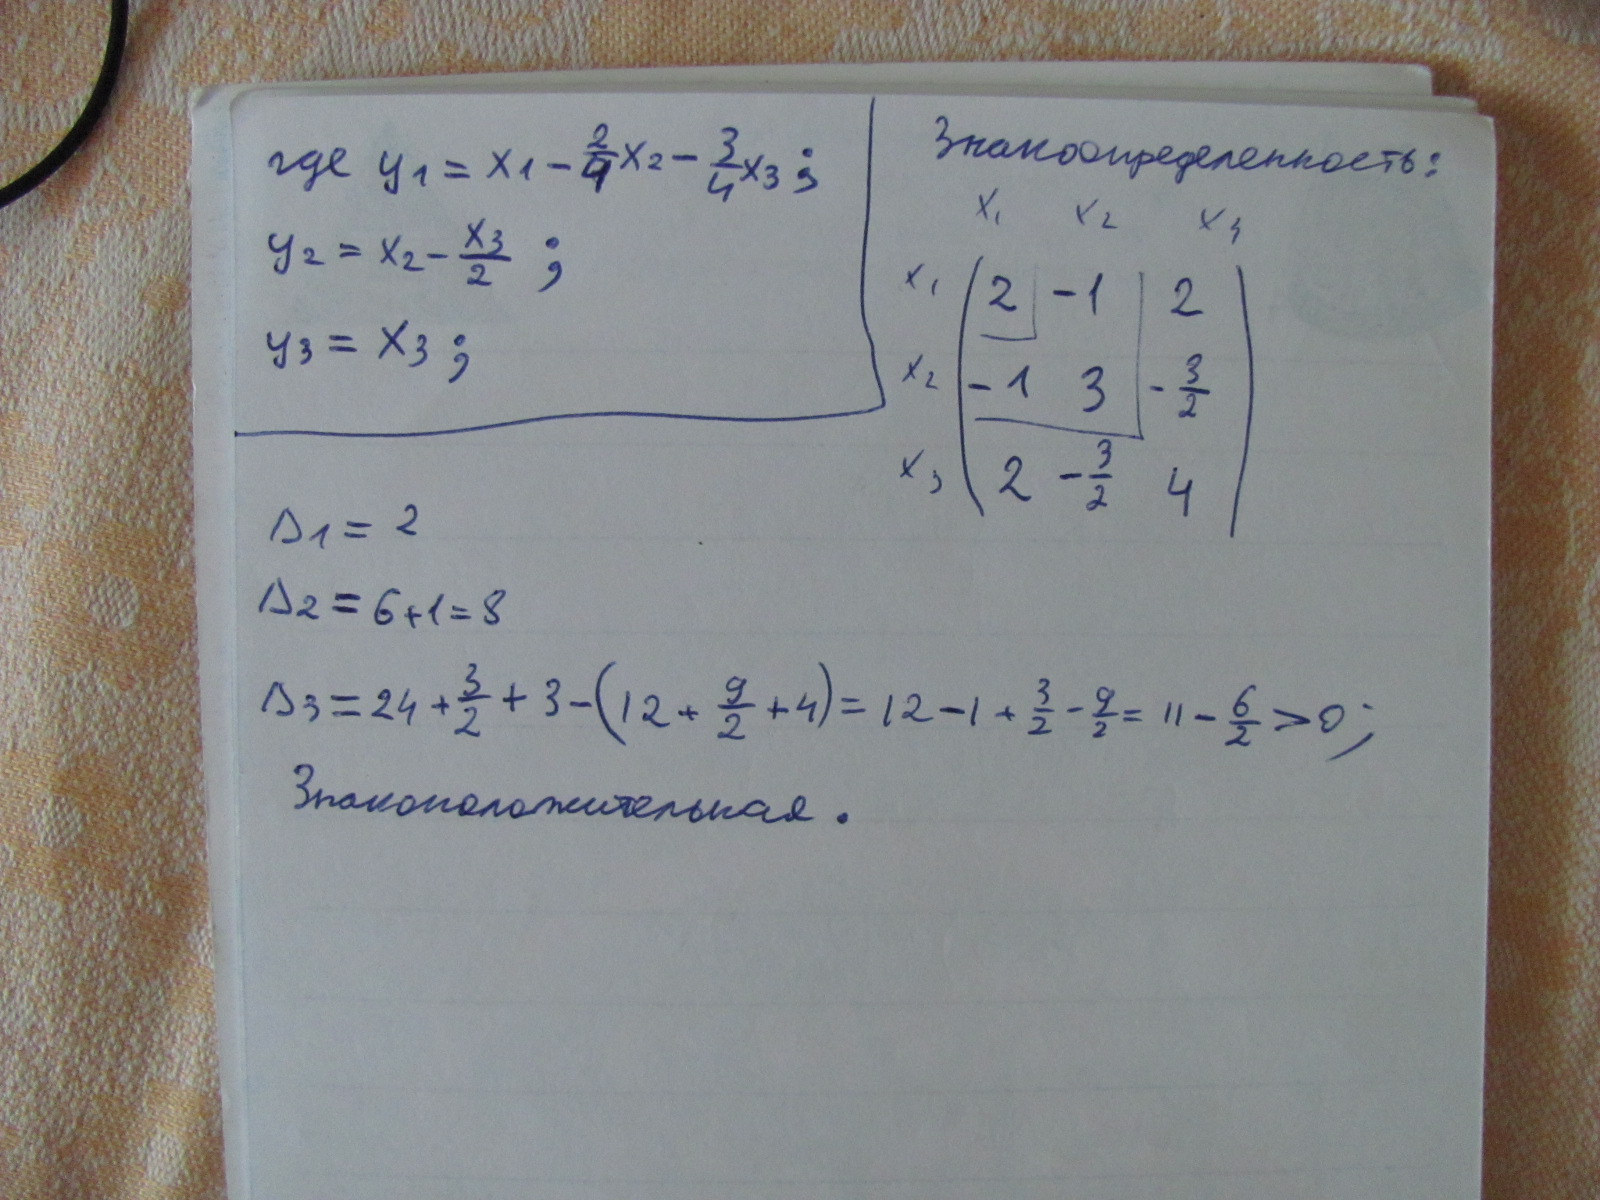 где y1 = x1 - 2/4 x2 - 3/4 x3 ;
y2 = x2 - x3/2 ;
y3 = x3 ;
Знакоопределенность:
x1 x2 x3
x1 2 -1 2
x2 -1 3 -3/2
x3 2 -3/2 4
Δ1 = 2
Δ2 = 6+1=8
Δ3 = 24 + 3/2 + 3 - (12 + 9/2 + 4) = 12 - 1 + 3/2 - 9/2 = 11 - 6/2 > 0;
Знакоположительная.